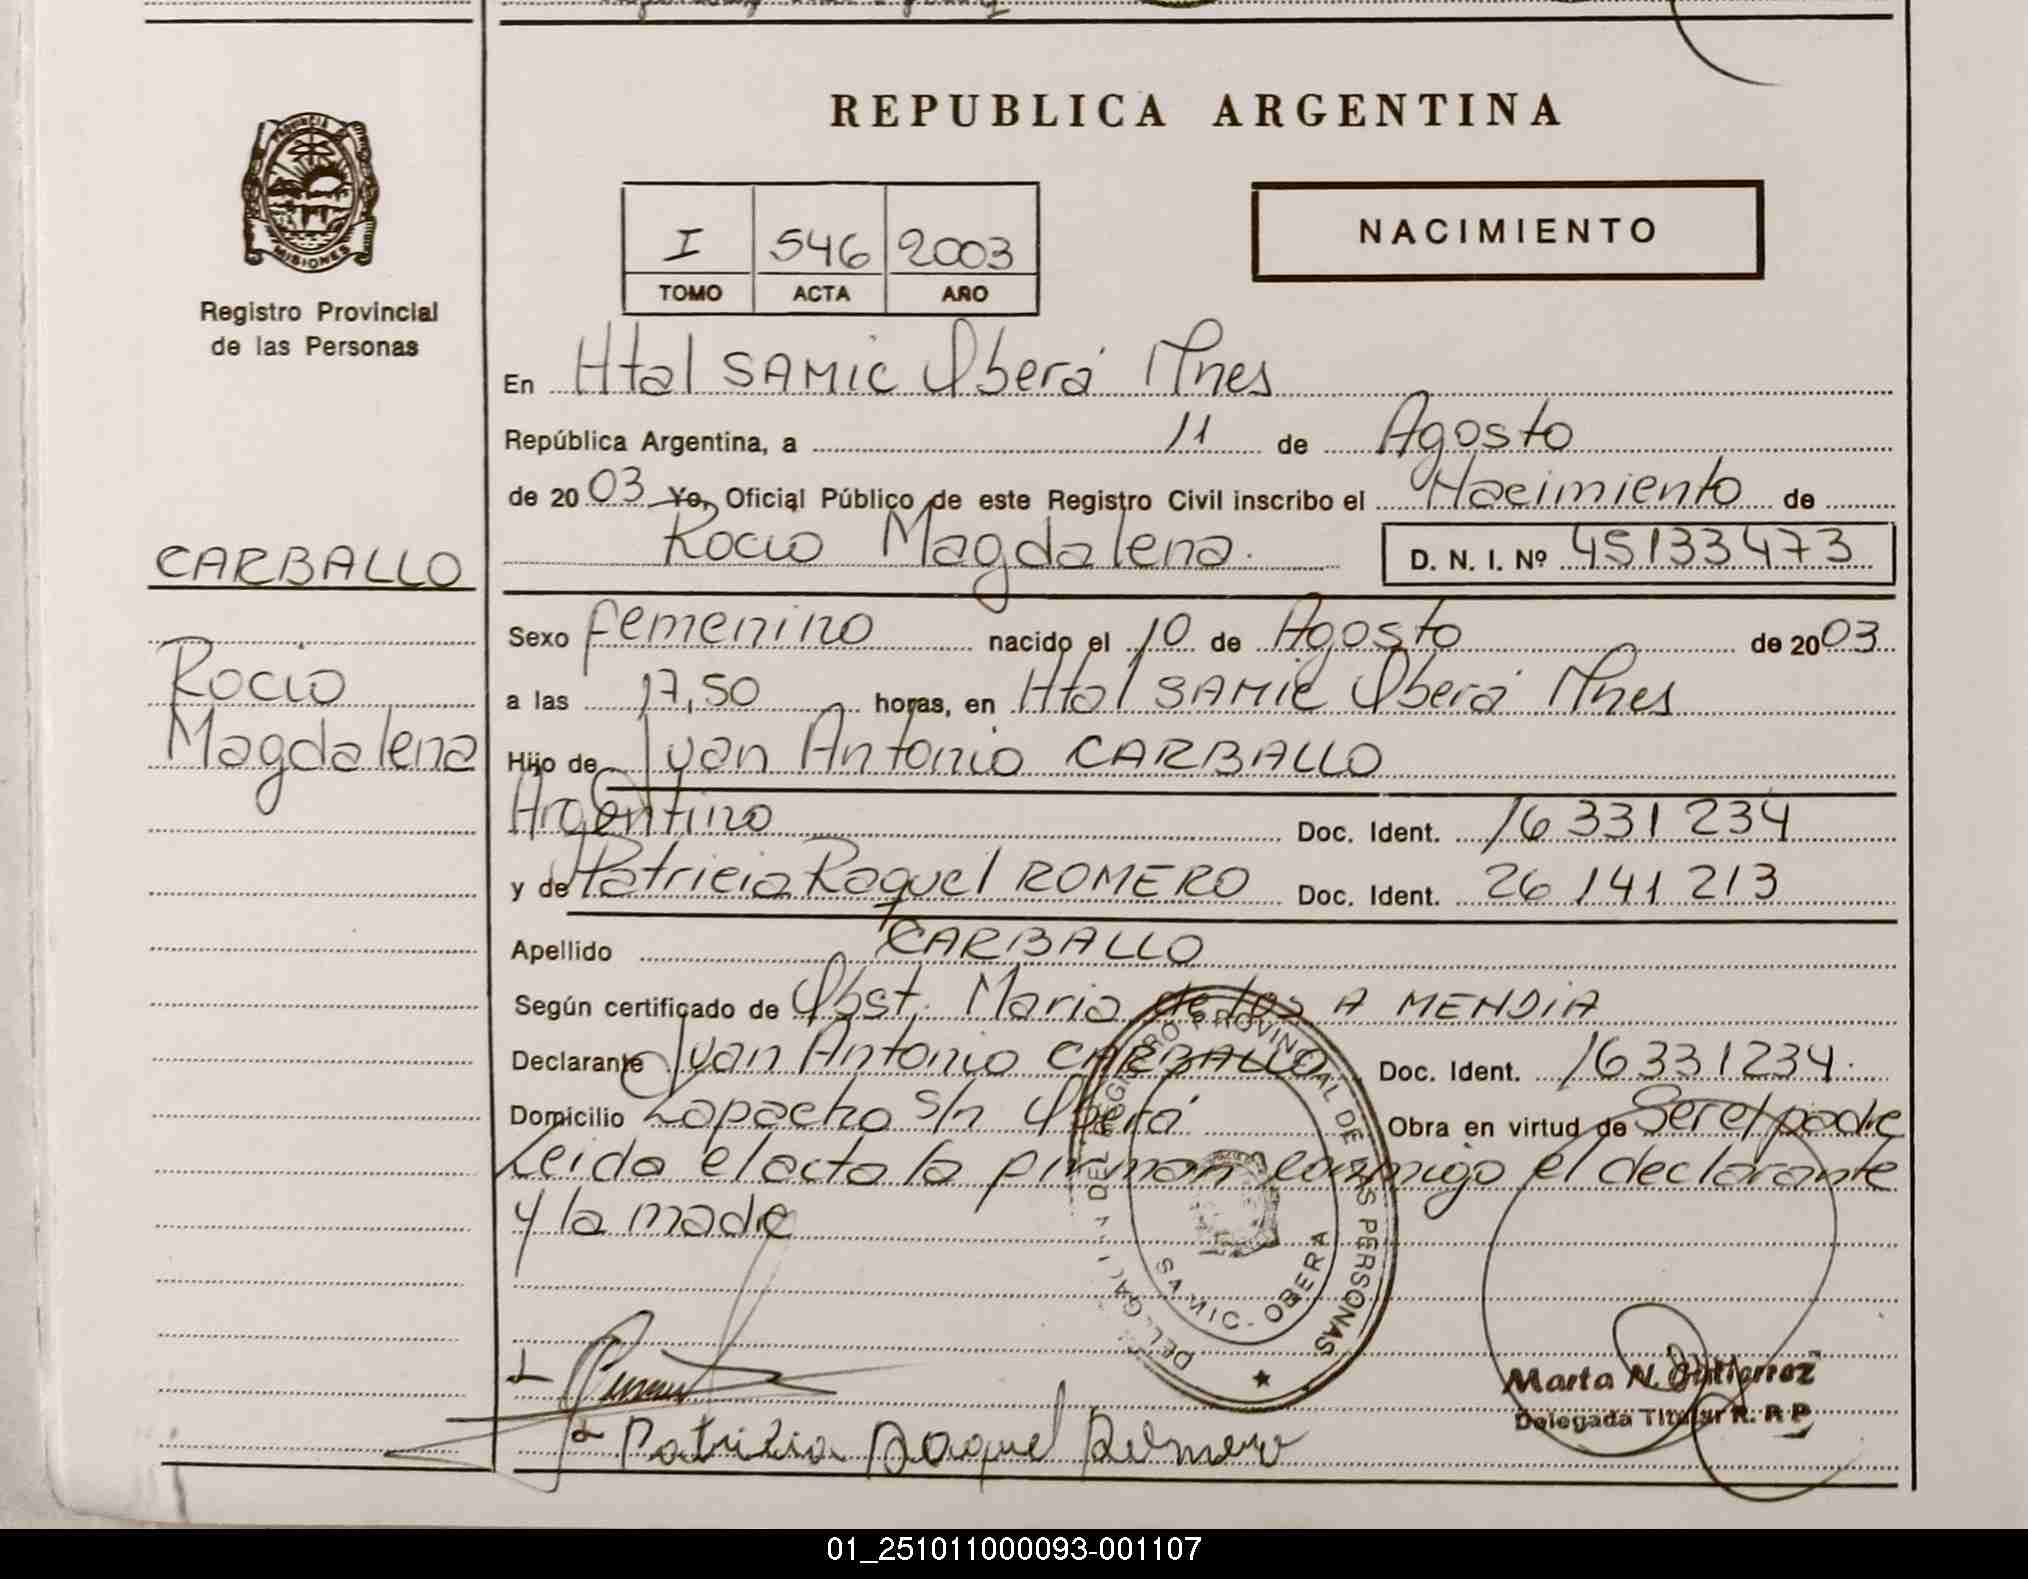 REPUBLICA ARGENTINA
PROVINCIA DE MISIONES
Registro Provincial
de las Personas
I 546 2003
TOMO ACTA AÑO
NACIMIENTO
En Htal SAMIC Oberá Mnes
República Argentina, a 11 de Agosto
de 2003 Yo, Oficial Público de este Registro Civil inscribo el Nacimiento de
Rocio Magdalena. D. N. I. Nº 45133473
CARBALLO
Rocio
Magdalena
Sexo femenino nacido el 10 de Agosto de 2003
a las 17,50 horas, en Htal SAMIC Oberá Mnes
Hijo de Juan Antonio CARBALLO
Argentino Doc. Ident. 16 331 234
y de Patricia Raquel ROMERO Doc. Ident. 26 141 213
Apellido CARBALLO
Según certificado de Obst. Maria de los A MENDIA
Declarante Juan Antonio CARBALLO Doc. Ident. 16331234.
Domicilio Lapacho s/n Oberá Obra en virtud de Ser el padre
Leida el acta la firman conmigo el declarante
y la madre
REGISTRO PROVINCIAL DE LAS PERSONAS
SAMIC - OBERA
Patricia Raquel Romero
Marta N. Gutierrez
Delegada Titular R. P. P.
01_251011000093-001107